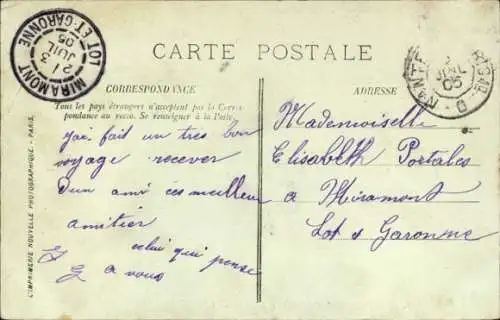 CARTE POSTALE
MIRAMONT
LOT-ET-GARONNE
21
JUIL
05
3
JUIL
05
CORRESPONDANCE
Tous les pays étrangers n'acceptent pas la Corres-
pondance au recto. Se renseigner à la Poste.
ADRESSE
j'ai fait un tres bon
voyage recever
d'un ami ces meilleur
amitier
celui qui pense
a vous
Mademoiselle
Elisabeth Portales
a Miramont
Lot & Garonne
L'IMPRIMERIE NOUVELLE PHOTOGRAPHIQUE - PARIS.